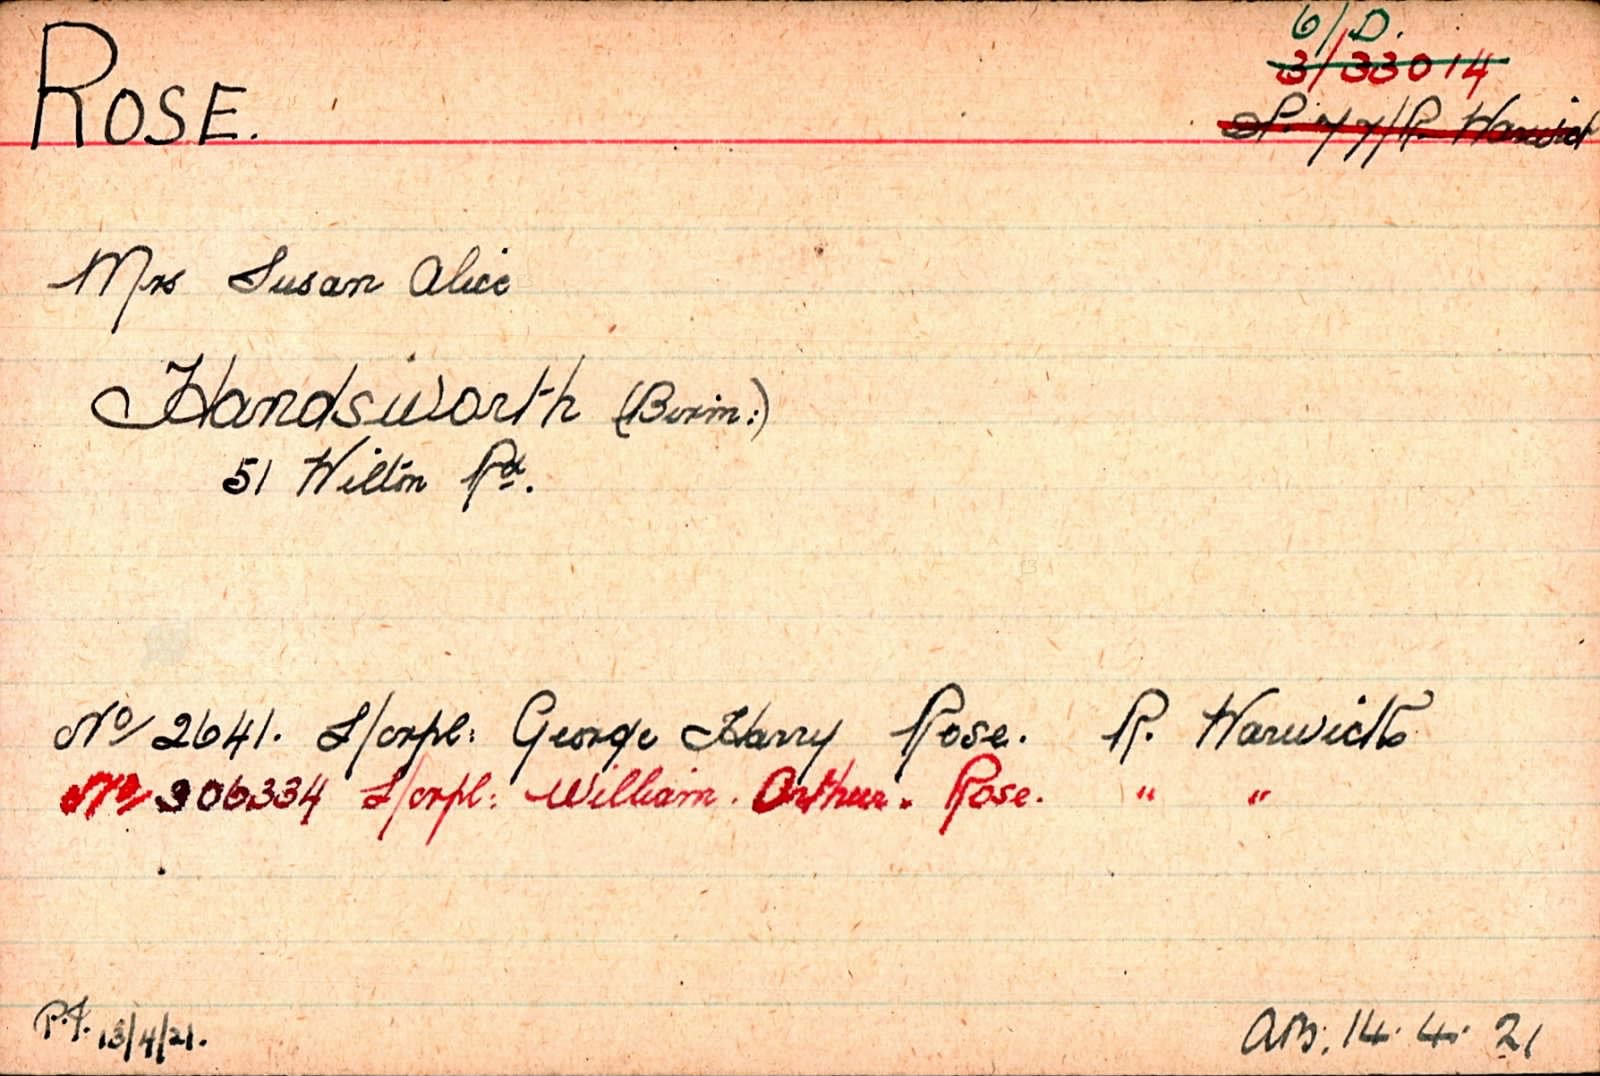 6/D.
3/33014
ROSE.
S. 77/R. Warwick
Mrs Susan Alice
Handsworth (Birm:)
51 Wilton Rd.
No/ 2641. L/corpl: George Harry Rose. R. Warwicks
No/ 306334 L/corpl: William. Arthur. Rose. " "
P.J. 13/4/21.
AB: 14. 4. 21